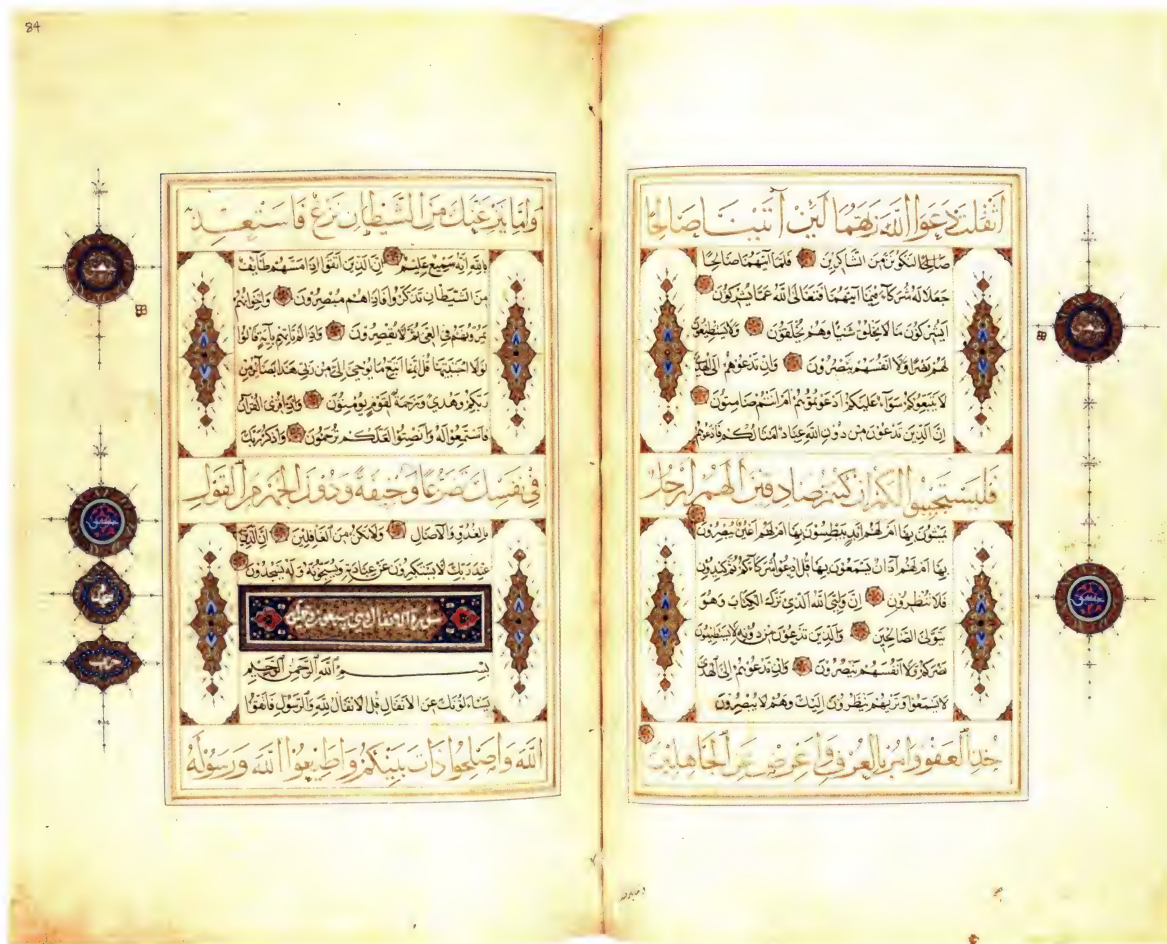 أثقلت دعوا الله ربهما لئن آتيتنا صالحا
صالحا لنكونن من الشاكرين فلما آتيهما صالحا
جعلا له شركاء فيما آتيهما فتعالى الله عما يشركون
ايشركون ما لا يخلق شيئا وهم يخلقون ولا يستطيعون
لهم نصرا ولا أنفسهم ينصرون وإن تدعوهم إلى الهدى
لا يتبعوكم سواء عليكم ادعوتموهم ام انتم صامتون
إن الذين تدعون من دون الله عباد أمثالكم فادعوهم
فليستجيبوا لكم ان كنتم صادقين ألهم أرجل
يمشون بها ام لهم ايد يبطشون بها ام لهم اعين يبصرون
بها ام لهم آذان يسمعون بها قل ادعوا شركاءكم ثم كيدون
فلا تنظرون إن وليي الله الذي نزل الكتاب وهو
يتولى الصالحين والذين تدعون من دونه لا يستطيعون
نصركم ولا أنفسهم ينصرون وإن تدعوهم إلى الهدى
لا يسمعوا وتريهم ينظرون إليك وهم لا يبصرون
خذ العفو وامر بالعرف واعرض عن الجاهلين
84
واما ينزغنك من الشيطان نزغ فاستعذ
بالله انه سميع عليم ان الذين اتقوا اذا مسهم طائف
من الشيطان تذكروا فاذا هم مبصرون واخوانهم
يمدونهم في الغي ثم لا يقصرون واذا لم تاتهم باية قالوا
لولا اجتبيتها قل انما اتبع ما يوحى الي من ربي هذا بصائر من
ربكم وهدى ورحمة لقوم يؤمنون واذا قرئ القرآن
فاستمعوا له وانصتوا لعلكم ترحمون واذكر ربك
في نفسك تضرعا وخيفة ودون الجهر من القول
بالغدو والآصال ولا تكن من الغافلين ان الذين
عند ربك لا يستكبرون عن عبادته ويسبحونه وله يسجدون
سورة الانفال
بسم الله الرحمن الرحيم
يسئلونك عن الانفال قل الانفال لله والرسول فاتقوا
الله واصلحوا ذات بينكم واطيعوا الله ورسوله